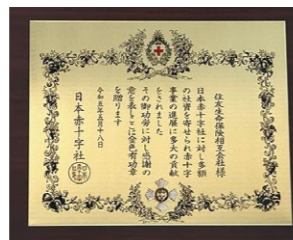 住友生命保険相互会社様
日本赤十字社に対し多額
の社資を寄せられ赤十字
事業の進展に多大の貢献
をされました
その御功労に対し感謝の
意を表しここに金色有功章
を贈ります
令和五年五月十八日
日本赤十字社